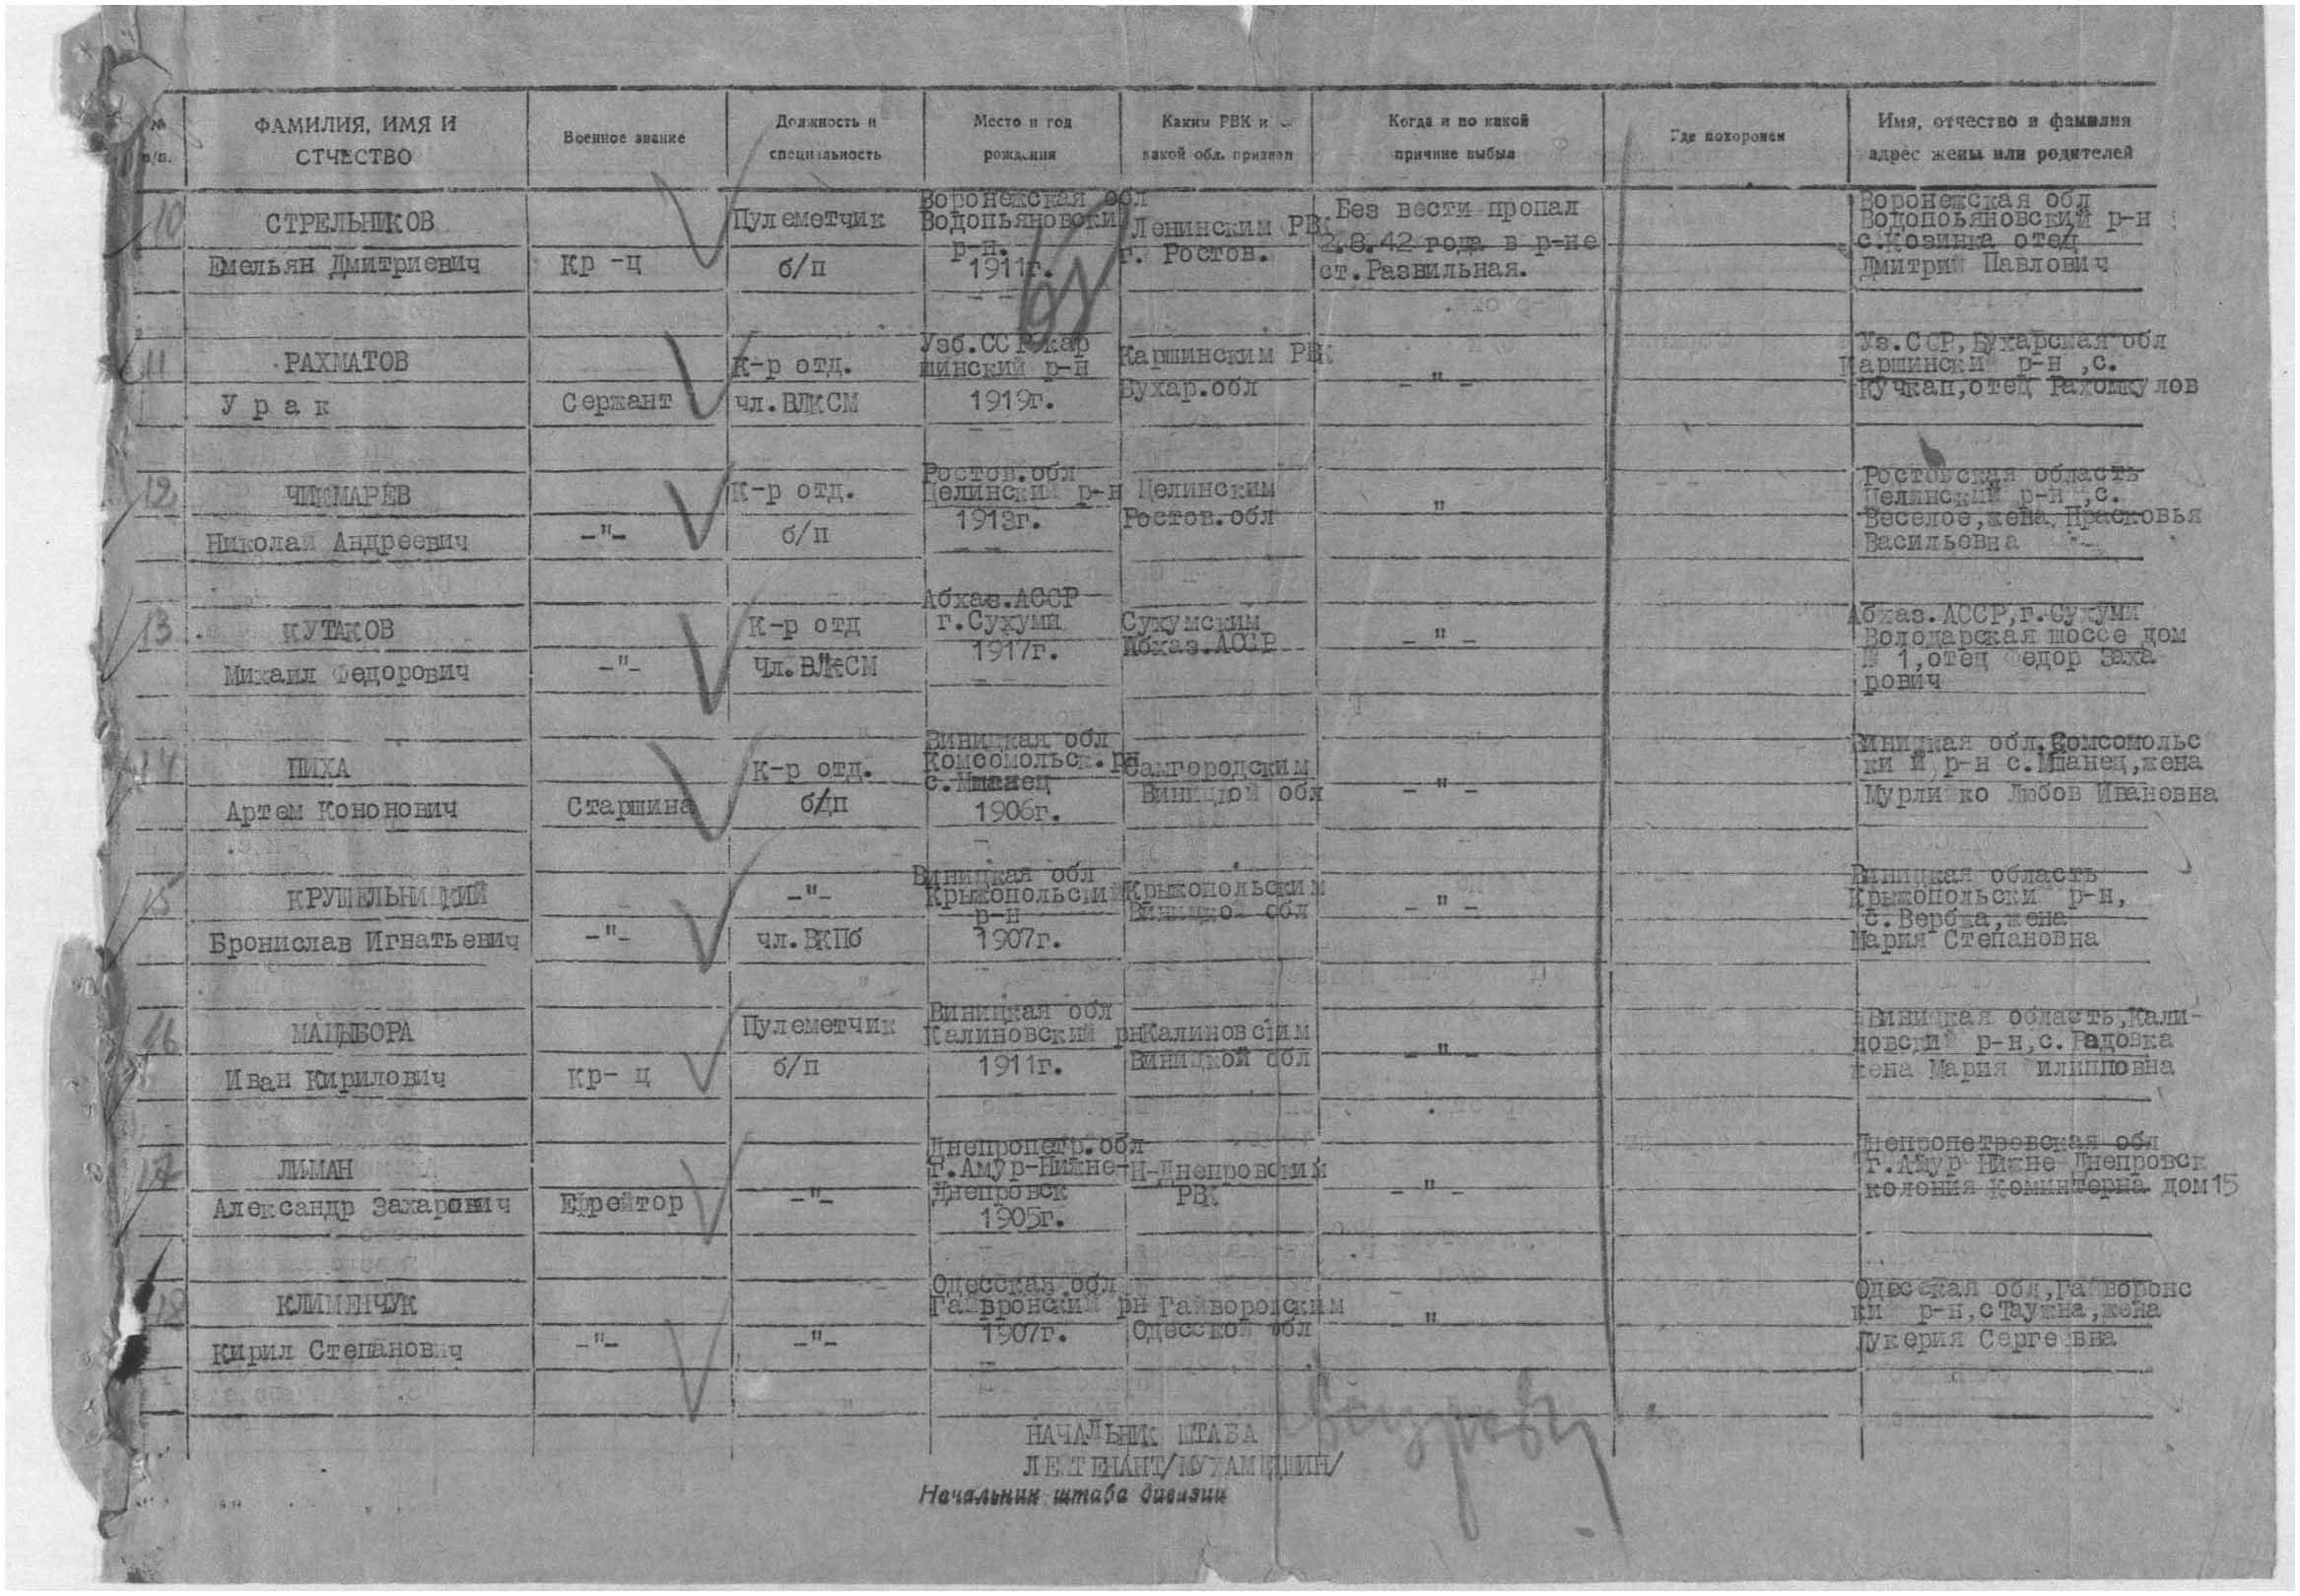 № п/п.
ФАМИЛИЯ, ИМЯ И
ОТЧЕСТВО
Военное звание
Должность и
специальность
Место и год
рождения
Каким РВК и
какой обл. призван
Когда и по какой
причине выбыл
Где похоронен
Имя, отчество и фамилия
адрес жены или родителей
10
СТРЕЛЬНИКОВ
Емельян Дмитриевич
Кр-ц
Пулеметчик
б/п
Воронежская обл
Водопьяновски
р-н.
1911г.
Ленинским РВК
г. Ростов.
Без вести пропал
2.8.42 года в р-не
ст.Развильная.
Воронежская обл
Водопоьяновский р-н
с.Козинка отец
Дмитрий Павлович
11
РАХМАТОВ
У р а к
Сержант
К-р отд.
чл.ВЛКСМ
Узб.ССР Кар
шинский р-н
1919г.
Каршинским РВК
Бухар.обл
-"-
Уз.ССР, Бухарская обл
Каршинский р-н ,с.
Кучкап,отец Рахомкулов
12
ЧИКМАРЕВ
Николай Андреевич
-"-
К-р отд.
б/п
Ростов.обл
Целинский р-н
1913г.
Целинским
Ростов.обл
"
Ростовская область
Целинский р-н ,с.
Веселое,жена Прасковья
Васильевна
13
КУТАКОВ
Михаил Федорович
-"-
К-р отд
Чл.ВЛКСМ
Абхаз.АССР
г.Сухуми
1917г.
Сухумским
Абхаз.АССР
-"-
Абхаз.АССР,г.Сухуми
Володарская шоссе дом
№ 1,отец Федор Заха
рович
14
ПИХА
Артем Кононович
Старшина
К-р отд.
б/п
Виницкая обл
Комсомольск.рн
с.Мшанец
1906г.
Самгородским
Виницкой обл
-"-
Виницкая обл.Комсомольс
ки й р-н с.Мшанец,жена
Мурлийко Любов Ивановна
15
КРУШЕЛЬНИЦКИЙ
Бронислав Игнатьевич
-"-
-"-
чл.ВКПб
Виницкая обл
Крыжопольский
р-н
1907г.
Крыжопольским
Виницкой обл
-"-
Виницкая область
Крыжопольски р-н,
с.Вербка,жена
Мария Степановна
16
МАЦЫБОРА
Иван Кирилович
Кр- ц
Пулеметчик
б/п
Виницкая обл
Калиновский рн
1911г.
Калиновским
Виницкой обл
-"-
Виницкая область,Кали-
новский р-н,с.Радовка
жена Мария Филипповна
17
ЛИМАН
Александр Захарович
Ефрейтор
-"-
Днепропетр.обл
г.Амур-Нижне-
Днепровск
1905г.
Н-Днепровским
РВК
-"-
Днепропетровская обл
г.Амур Нижне Днепровск
колония Коминтерна дом15
18
КЛИМЕНЧУК
Кирил Степанович
-"-
-"-
Одесская обл
Гайвронский рн
1907г.
Гайворовским
Одесской обл
"
Одесская обл,Гайворонс
кий р-н,с Таужна,жена
Лукерия Сергеевна
НАЧАЛЬНИК ШТАБА
ЛЕЙТЕНАНТ/МУХАМЕДШИН/
Начальник штаба дивизии